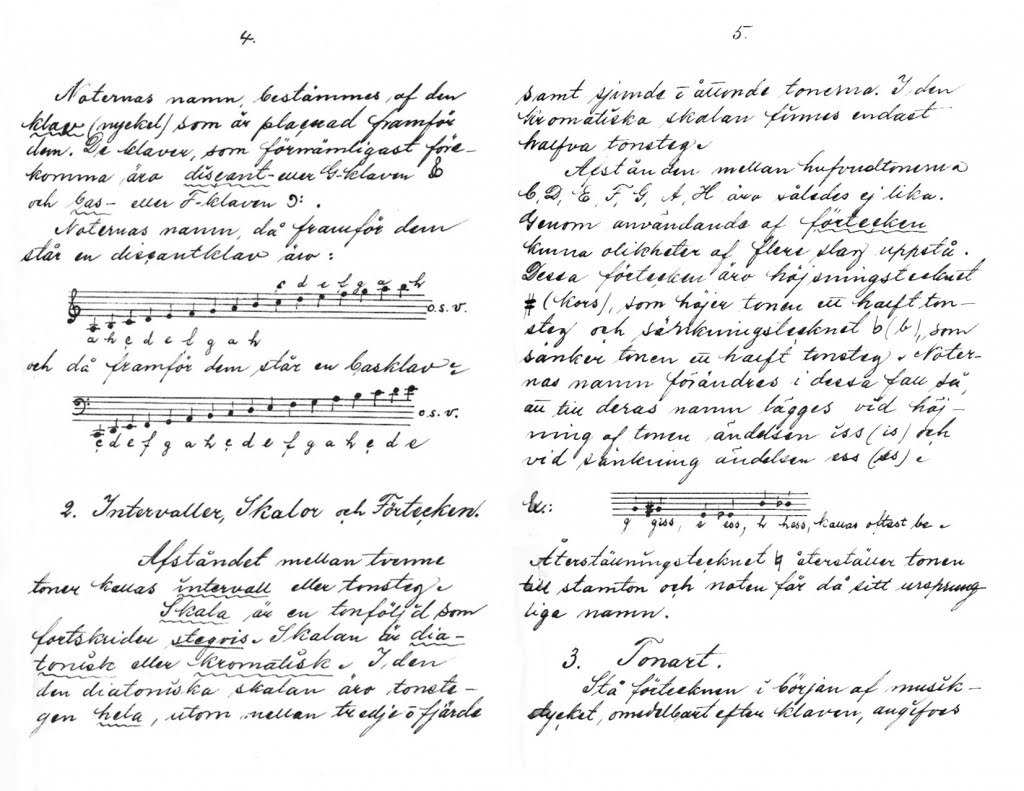 4.
Noternas namn, bestämmes af den
klav (nyckel) som är placerad framför
dem. De klaver, som förnämligast före-
komma äro discant- eller G-klaven
och bas- eller F-klaven 𝄢 .
Noternas namn, då framför dem
står en discantklav äro:
c d e f g a h
o.s.v.
a h c d e f g a h
och då framför dem står en basklav:
o.s.v.
c d e f g a h c d e f g a h c d e
2. Intervaller, Skalor och Förtecken.
Afståndet mellan tvenne
toner kallas intervall eller tonsteg.
Skala är en tonföljd som
fortskrider stegvis. Skalan är dia-
tonisk eller kromatisk. I den
den diatoniska skalan äro tonste-
gen hela, utom mellan tredje o fjärde
5.
samt sjunde o åttonde tonerna. I den
kromatiska skalan finnes endast
halfva tonsteg.
Afstånden mellan hufvudtonerna
C, D, E, F, G, A, H äro således ej lika.
Genom användande af förtecken
kunna olikheter af flere slag uppstå.
Dessa förtecken äro höjningstecknet
# (kors), som höjer tonen ett halft ton-
steg och sänkningstecknet b (b), som
sänker tonen ett halft tonsteg. Noter-
nas namn förändres i dessa fall så,
att till deras namn lägges vid höj-
ning af tonen ändelsen iss (is) och
vid sänkning ändelsen ess (es).
Ex.:
g giss, e ess, h hess, kallas oftast be.
Återställningstecknet ♮ återställer tonen
till stamton och noten får då sitt ursprung
liga namn.
3. Tonart.
Stå förtecknen i början af musik-
stycket, omedelbart efter klaven, angifves